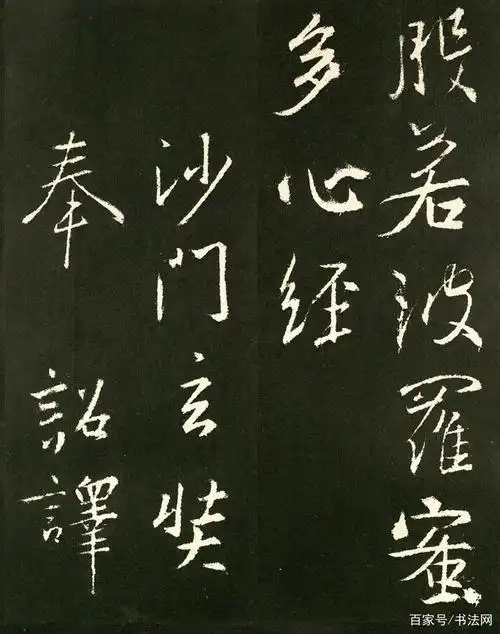 般若波羅蜜
多心經
沙門玄奘
奉 詔譯
百家号/书法网